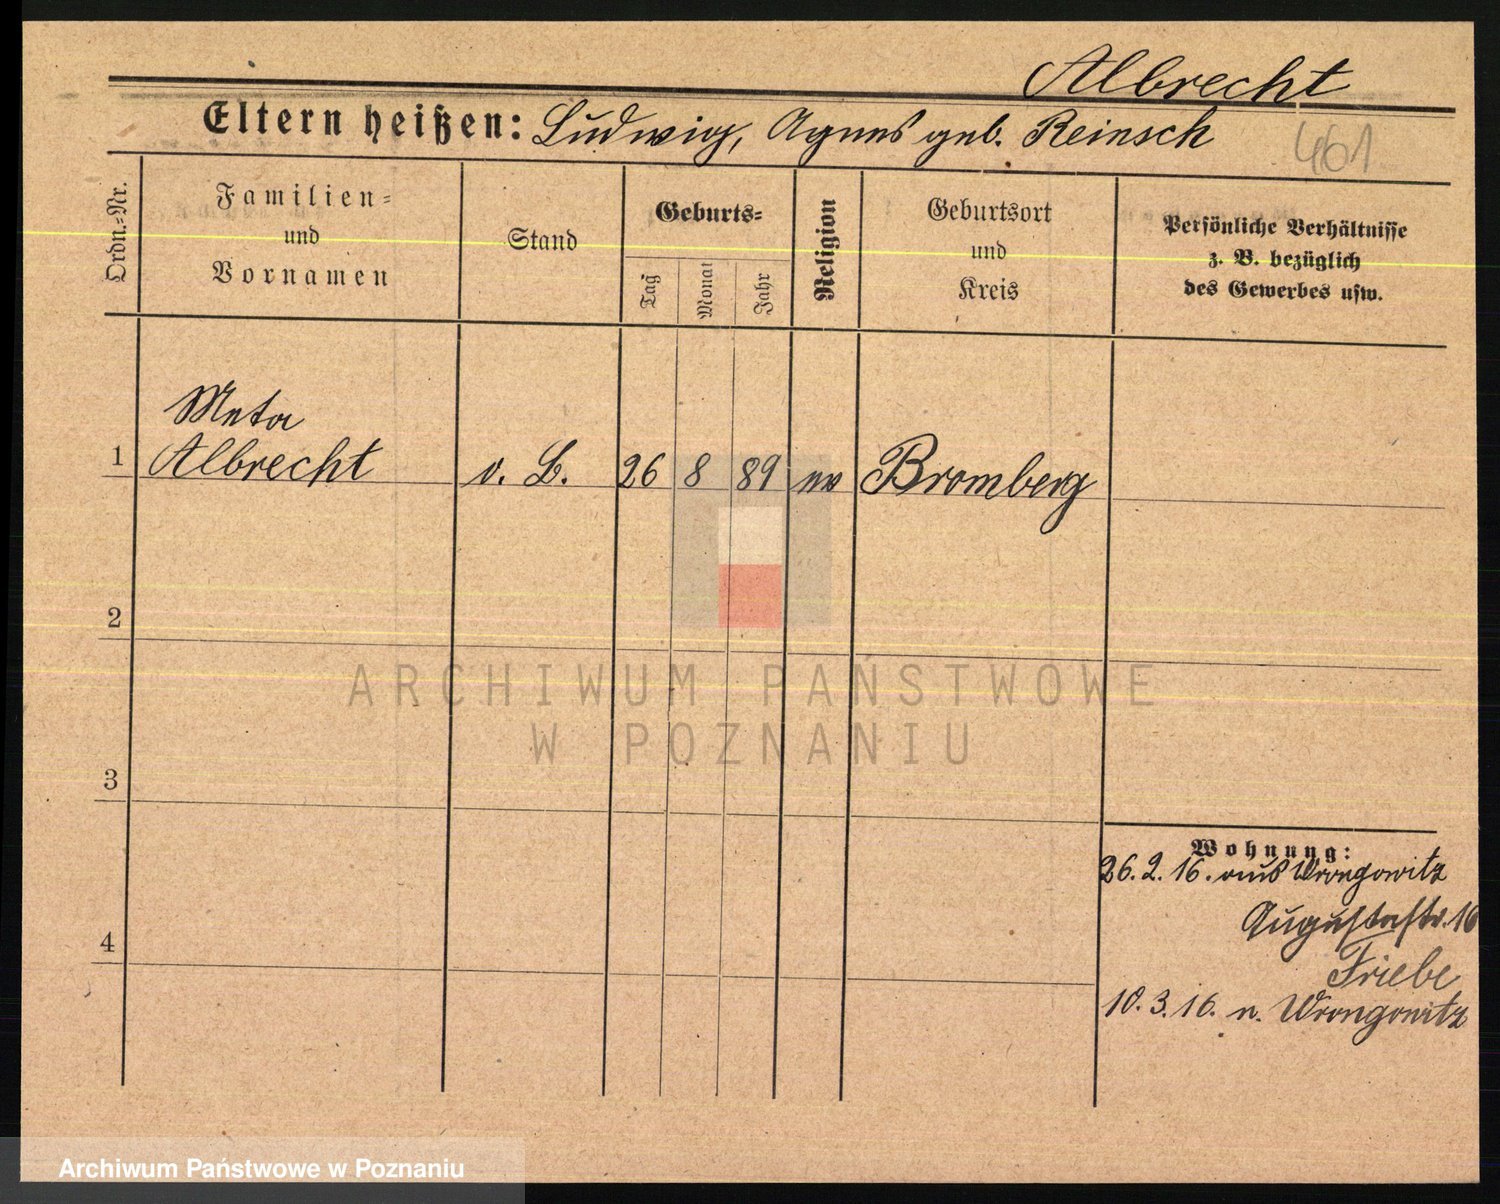 Albrecht
Eltern heißen: Ludwig, Agnes geb. Reinsch
461
Ordn.-Nr.
Familien-
und
Vornamen
Stand
Geburts-
Tag
Monat
Jahr
Religion
Geburtsort
und
Kreis
Persönliche Verhältnisse
z. B. bezüglich
des Gewerbes usw.
Meta
1 Albrecht o. B. 26 8 89 ev Bromberg
2
ARCHIWUM PAŃSTWOWE
W POZNANIU
3
Wohnung:
26. 2. 16. aus Wrongowitz
Augustastr. 16
4
Friebe
10. 3. 16. n. Wrongowitz
Archiwum Państwowe w Poznaniu